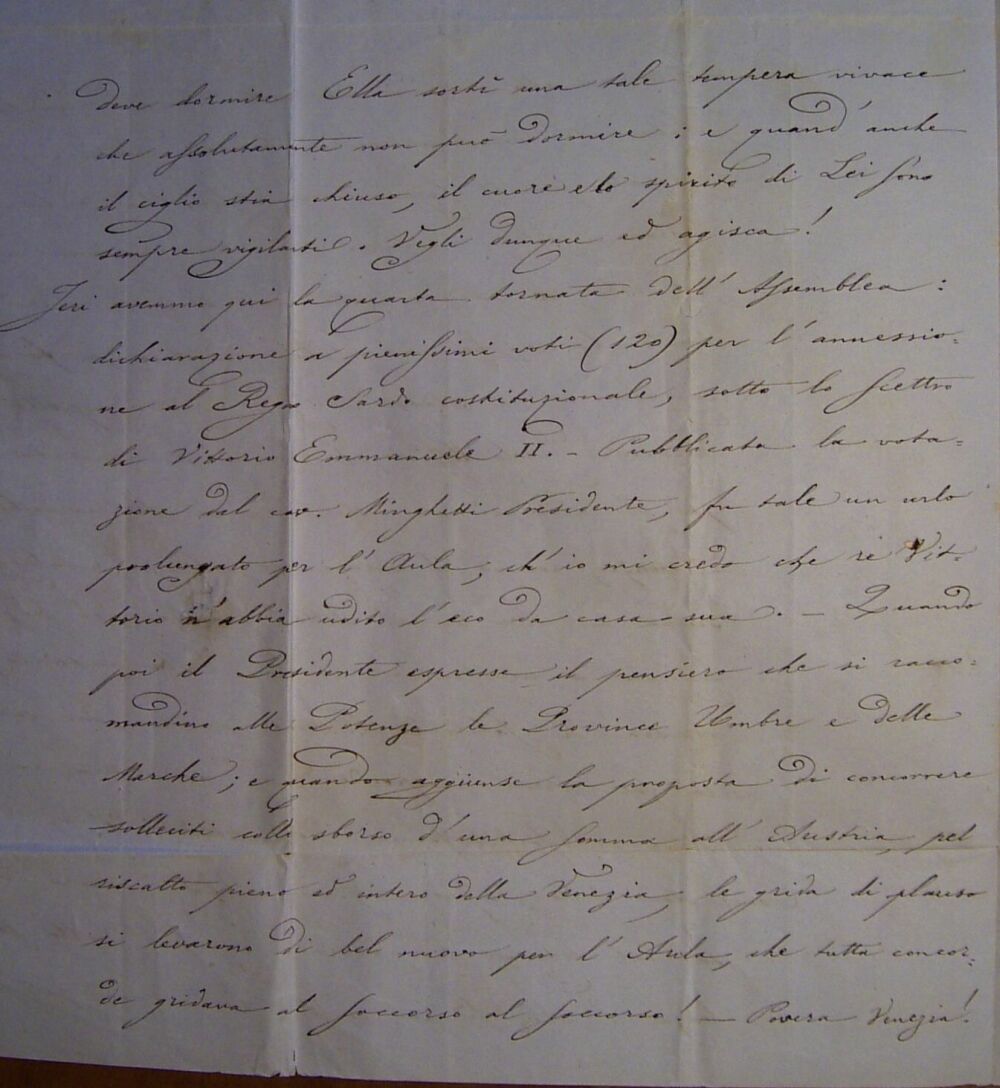 deve dormire Ella sortì una tale tempera vivace
che assolutamente non può dormire; e quand'anche
il ciglio stia chiuso, il cuore e lo spirito di Lei sono
sempre vigilanti. Vegli dunque ed agisca!
Jeri avemmo qui la quarta tornata dell'Assemblea:
dichiarazione a pienissimi voti (120) per l'annessio=
ne al Regno Sardo costituzionale, sotto lo scettro
di Vittorio Emmanuele II. - Pubblicata la vota=
zione del cav. Minghetti Presidente, fu tale un urlo
prolungato per l'Aula, ch'io mi credo che re Vit=
torio n'abbia udito l'eco da casa sua. - Quando
poi il Presidente espresse il pensiero che si racco=
mandino alle Potenze le Province Umbre e delle
Marche; e quando aggiunse la proposta di concorrere
solleciti collo sborso d'una somma all'Austria, pel
riscatto pieno ed intero della Venezia, le grida di plauso
si levarono di bel nuovo per l'Aula, che tutta concor=
de gridava al soccorso al soccorso! - Povera Venezia!